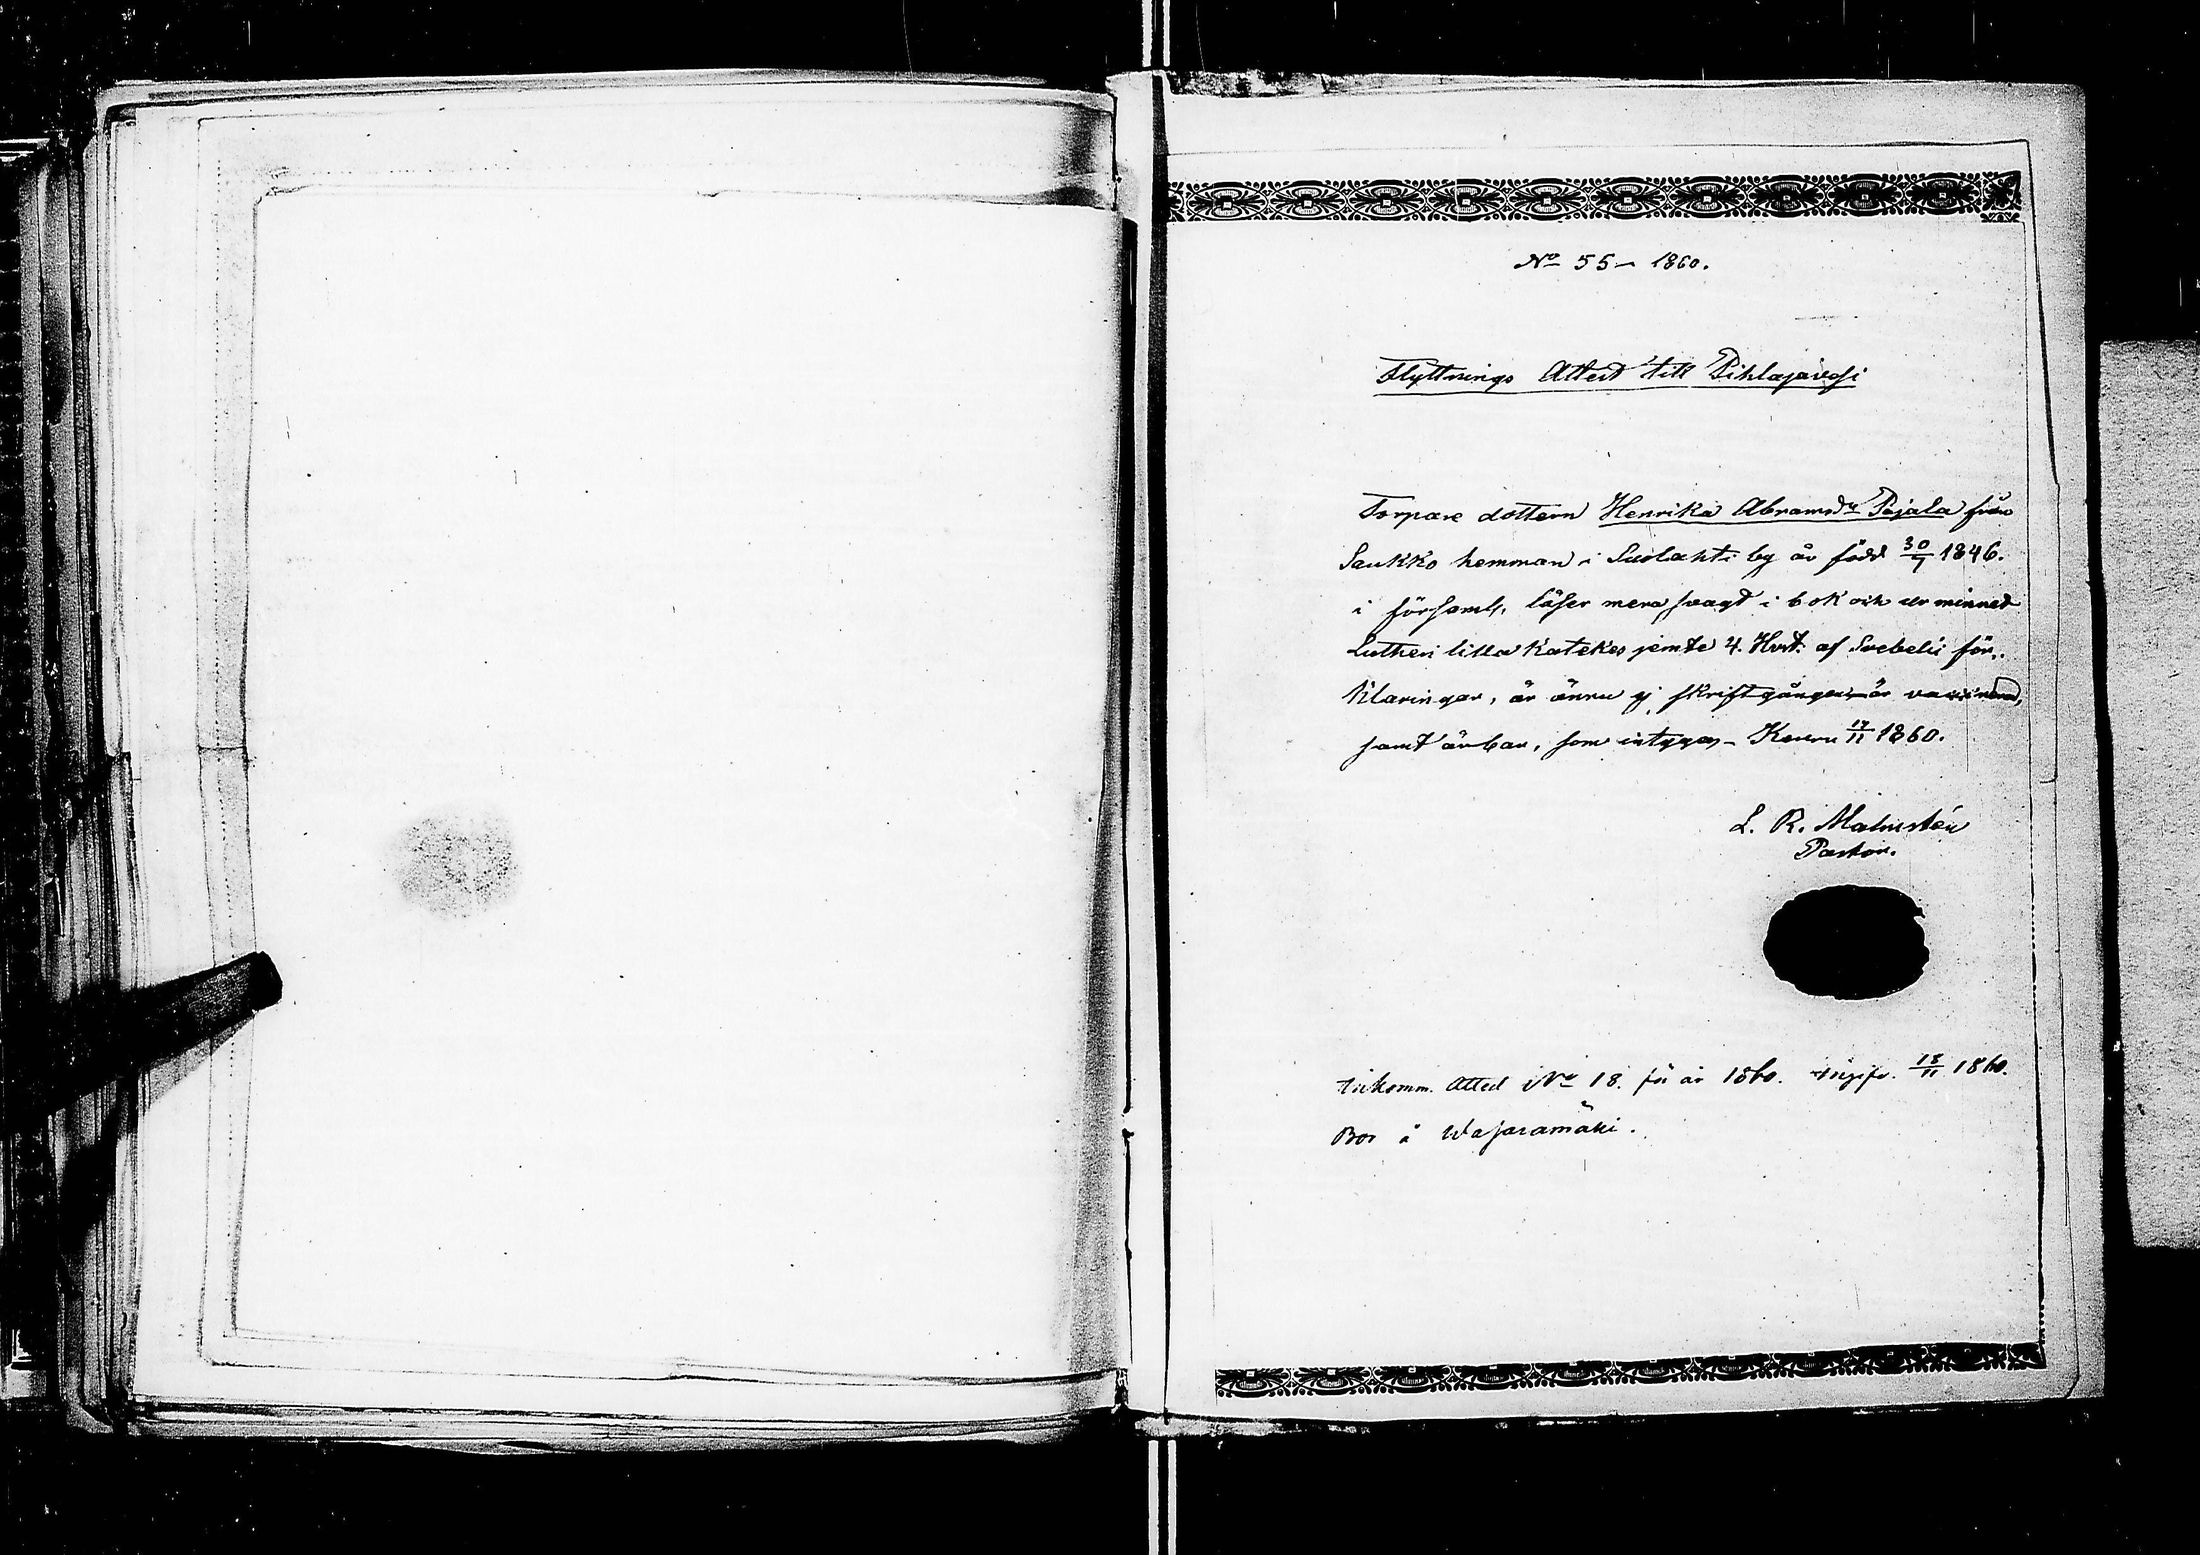 No 55 – 1860.
Flyttnings Attest till Pihlajavesi
Torpare dottern Henrika Abramsdr Pajala från
Saukko hemman i Suolahti by är född 30/7 1846.
i församl, läser mera svagt i bok och ur minnet
Lutheri lilla Katekes jemte 4. Hvst. af Svebelii för-
klaringar, är ännu ej skriftgången, är vaccinerad,
samt ärbar, som intygas – Keuru 17/11 1860.
L. R. Malmstén
Pastor.
Inkomm. Attest No 18. för år 1860. 18/11 1860.
Bor å